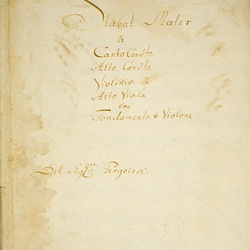 Stabat Mater
à
Canto Conc:to
Alto Conc:to
Violinis
Alto Viola
con
Fondamento ò Violone
Del Sig: Pergolesi.